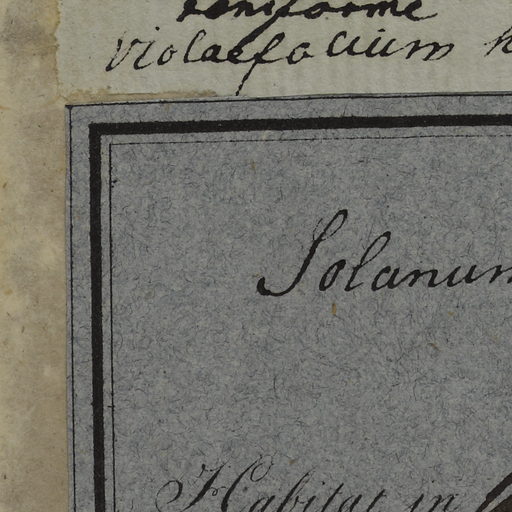 reniforme
violaefolium
Solanum
Habitat in